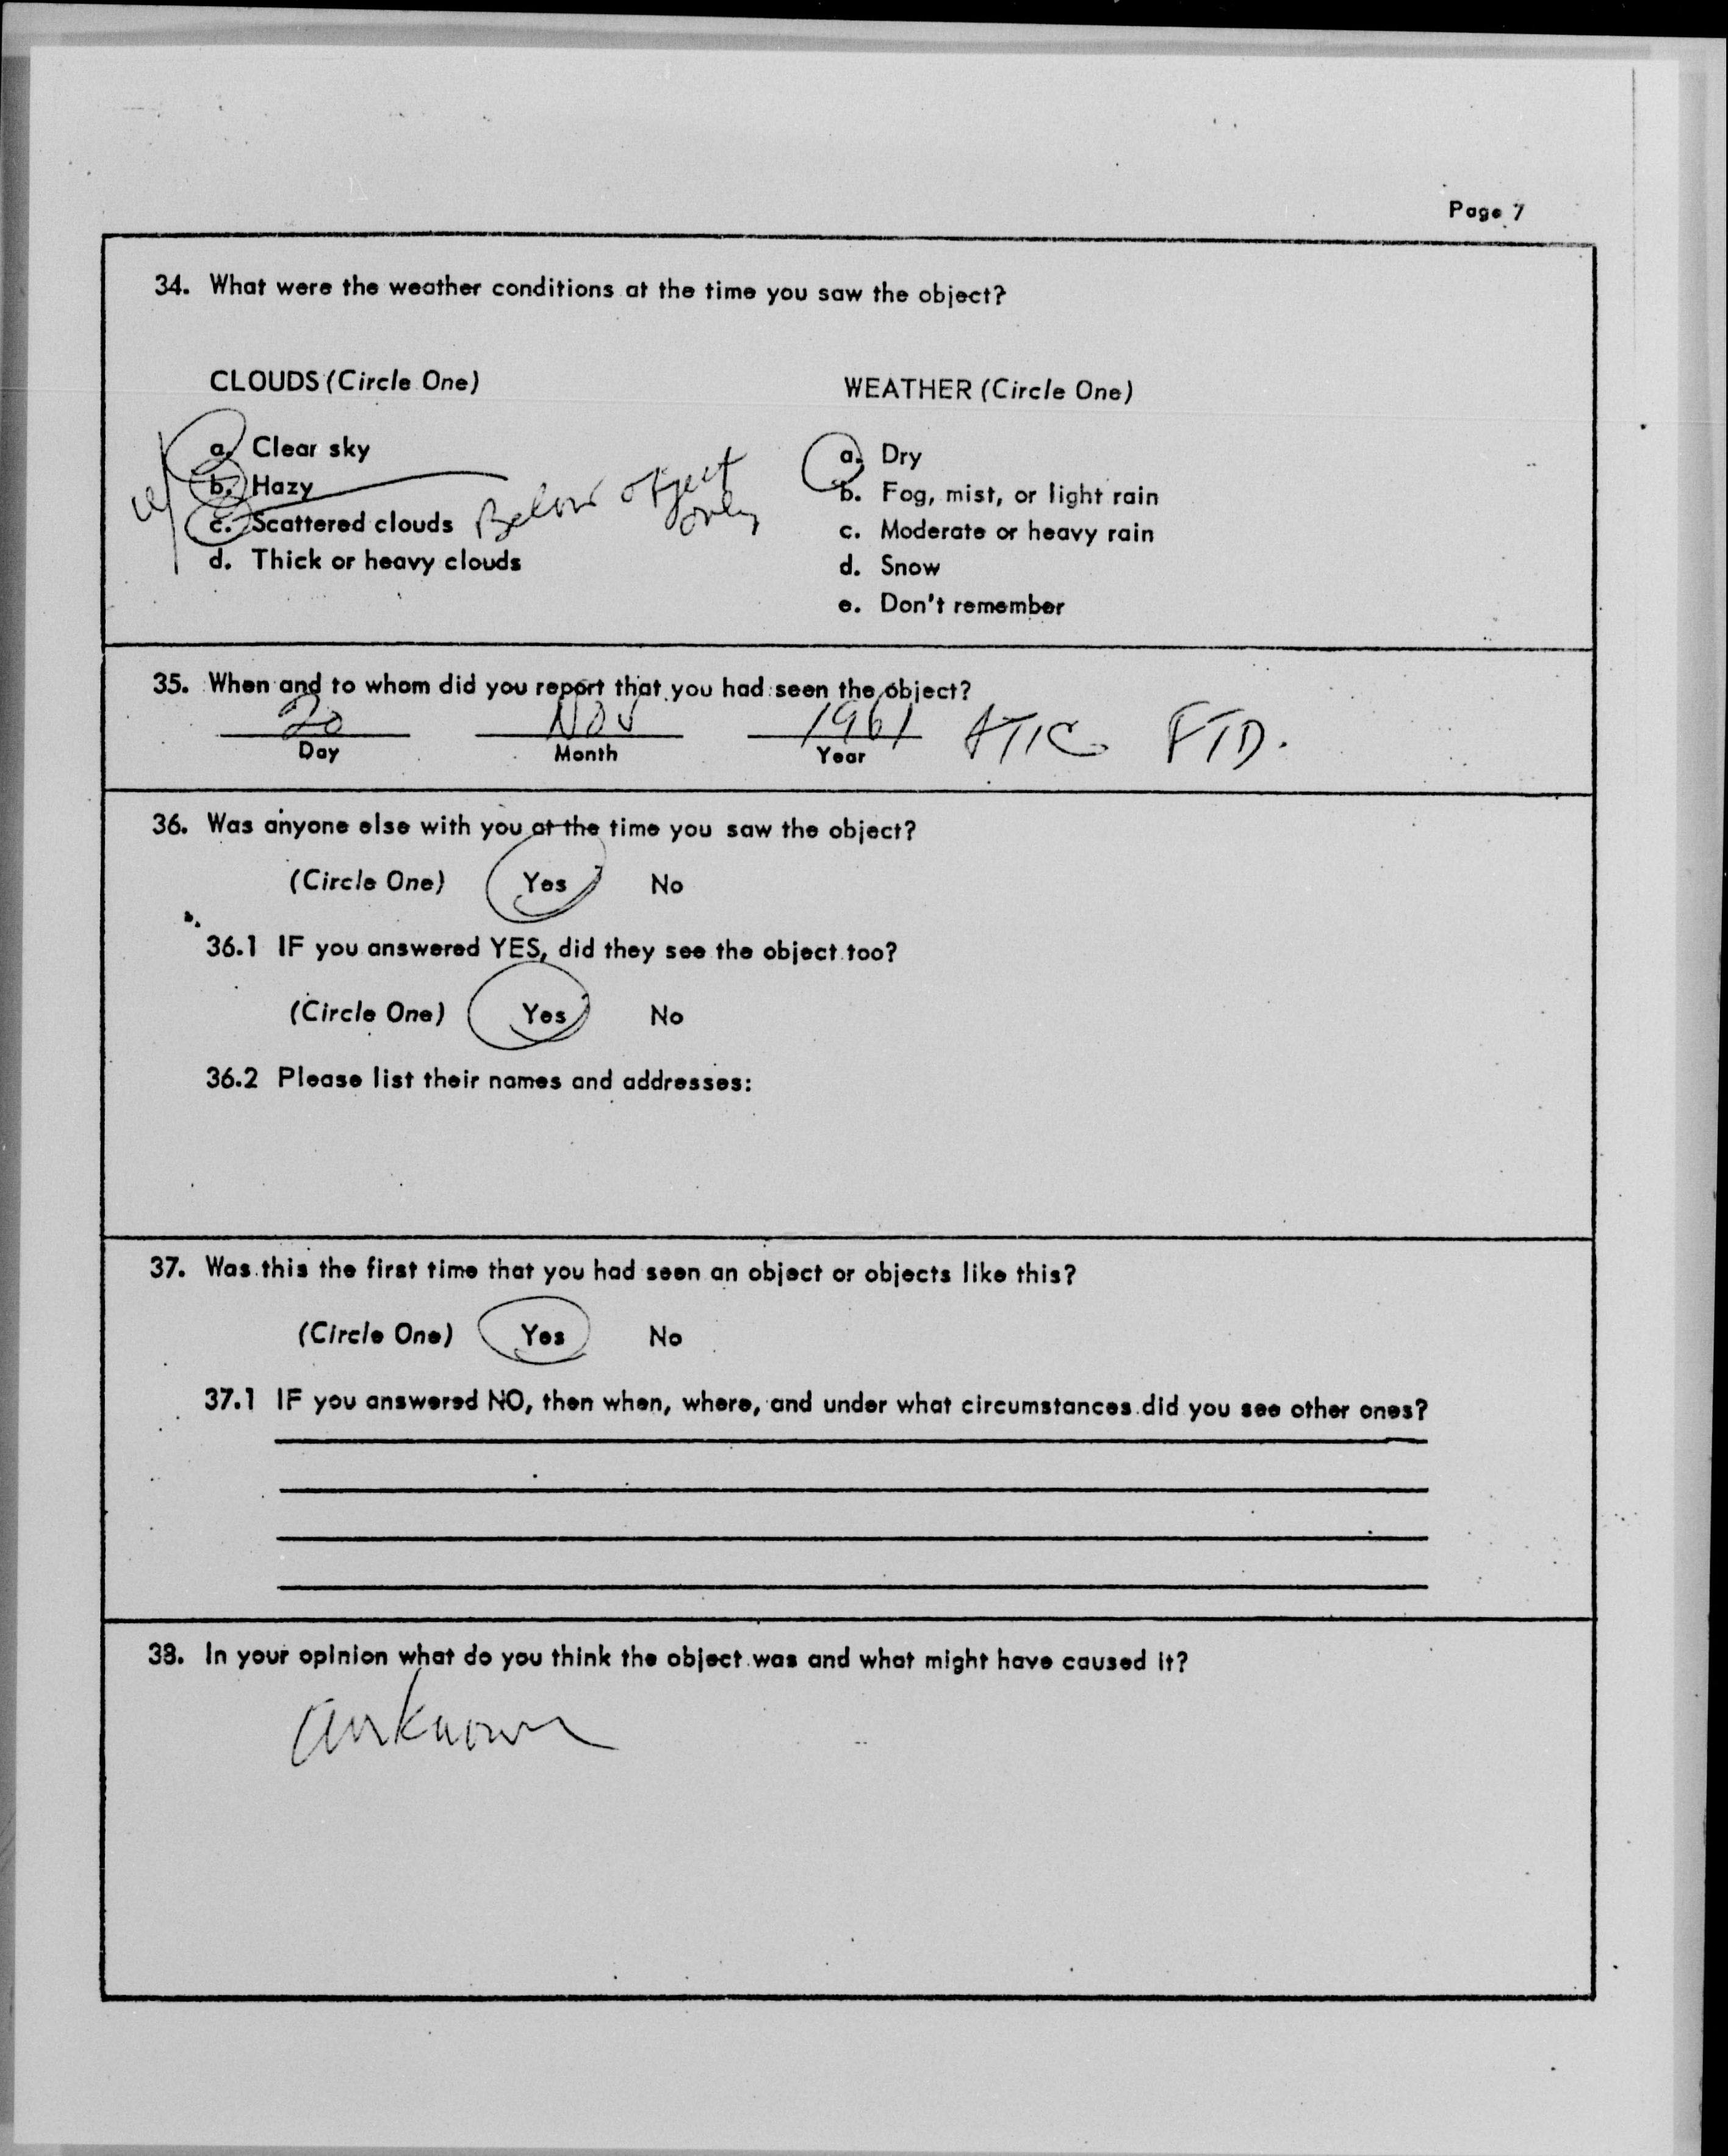 Page 7
34. What were the weather conditions at the time you saw the object?
CLOUDS (Circle One)
a. Clear sky
b. Hazy
c. Scattered clouds Below object only
d. Thick or heavy clouds
WEATHER (Circle One)
a. Dry
b. Fog, mist, or light rain
c. Moderate or heavy rain
d. Snow
e. Don't remember
35. When and to whom did you report that you had seen the object?
20 Nov 1961 ATIC FTD.
Day Month Year
36. Was anyone else with you at the time you saw the object?
(Circle One) Yes No
36.1 IF you answered YES, did they see the object too?
(Circle One) Yes No
36.2 Please list their names and addresses:
37. Was this the first time that you had seen an object or objects like this?
(Circle One) Yes No
37.1 IF you answered NO, then when, where, and under what circumstances did you see other ones?
38. In your opinion what do you think the object was and what might have caused it?
unknown